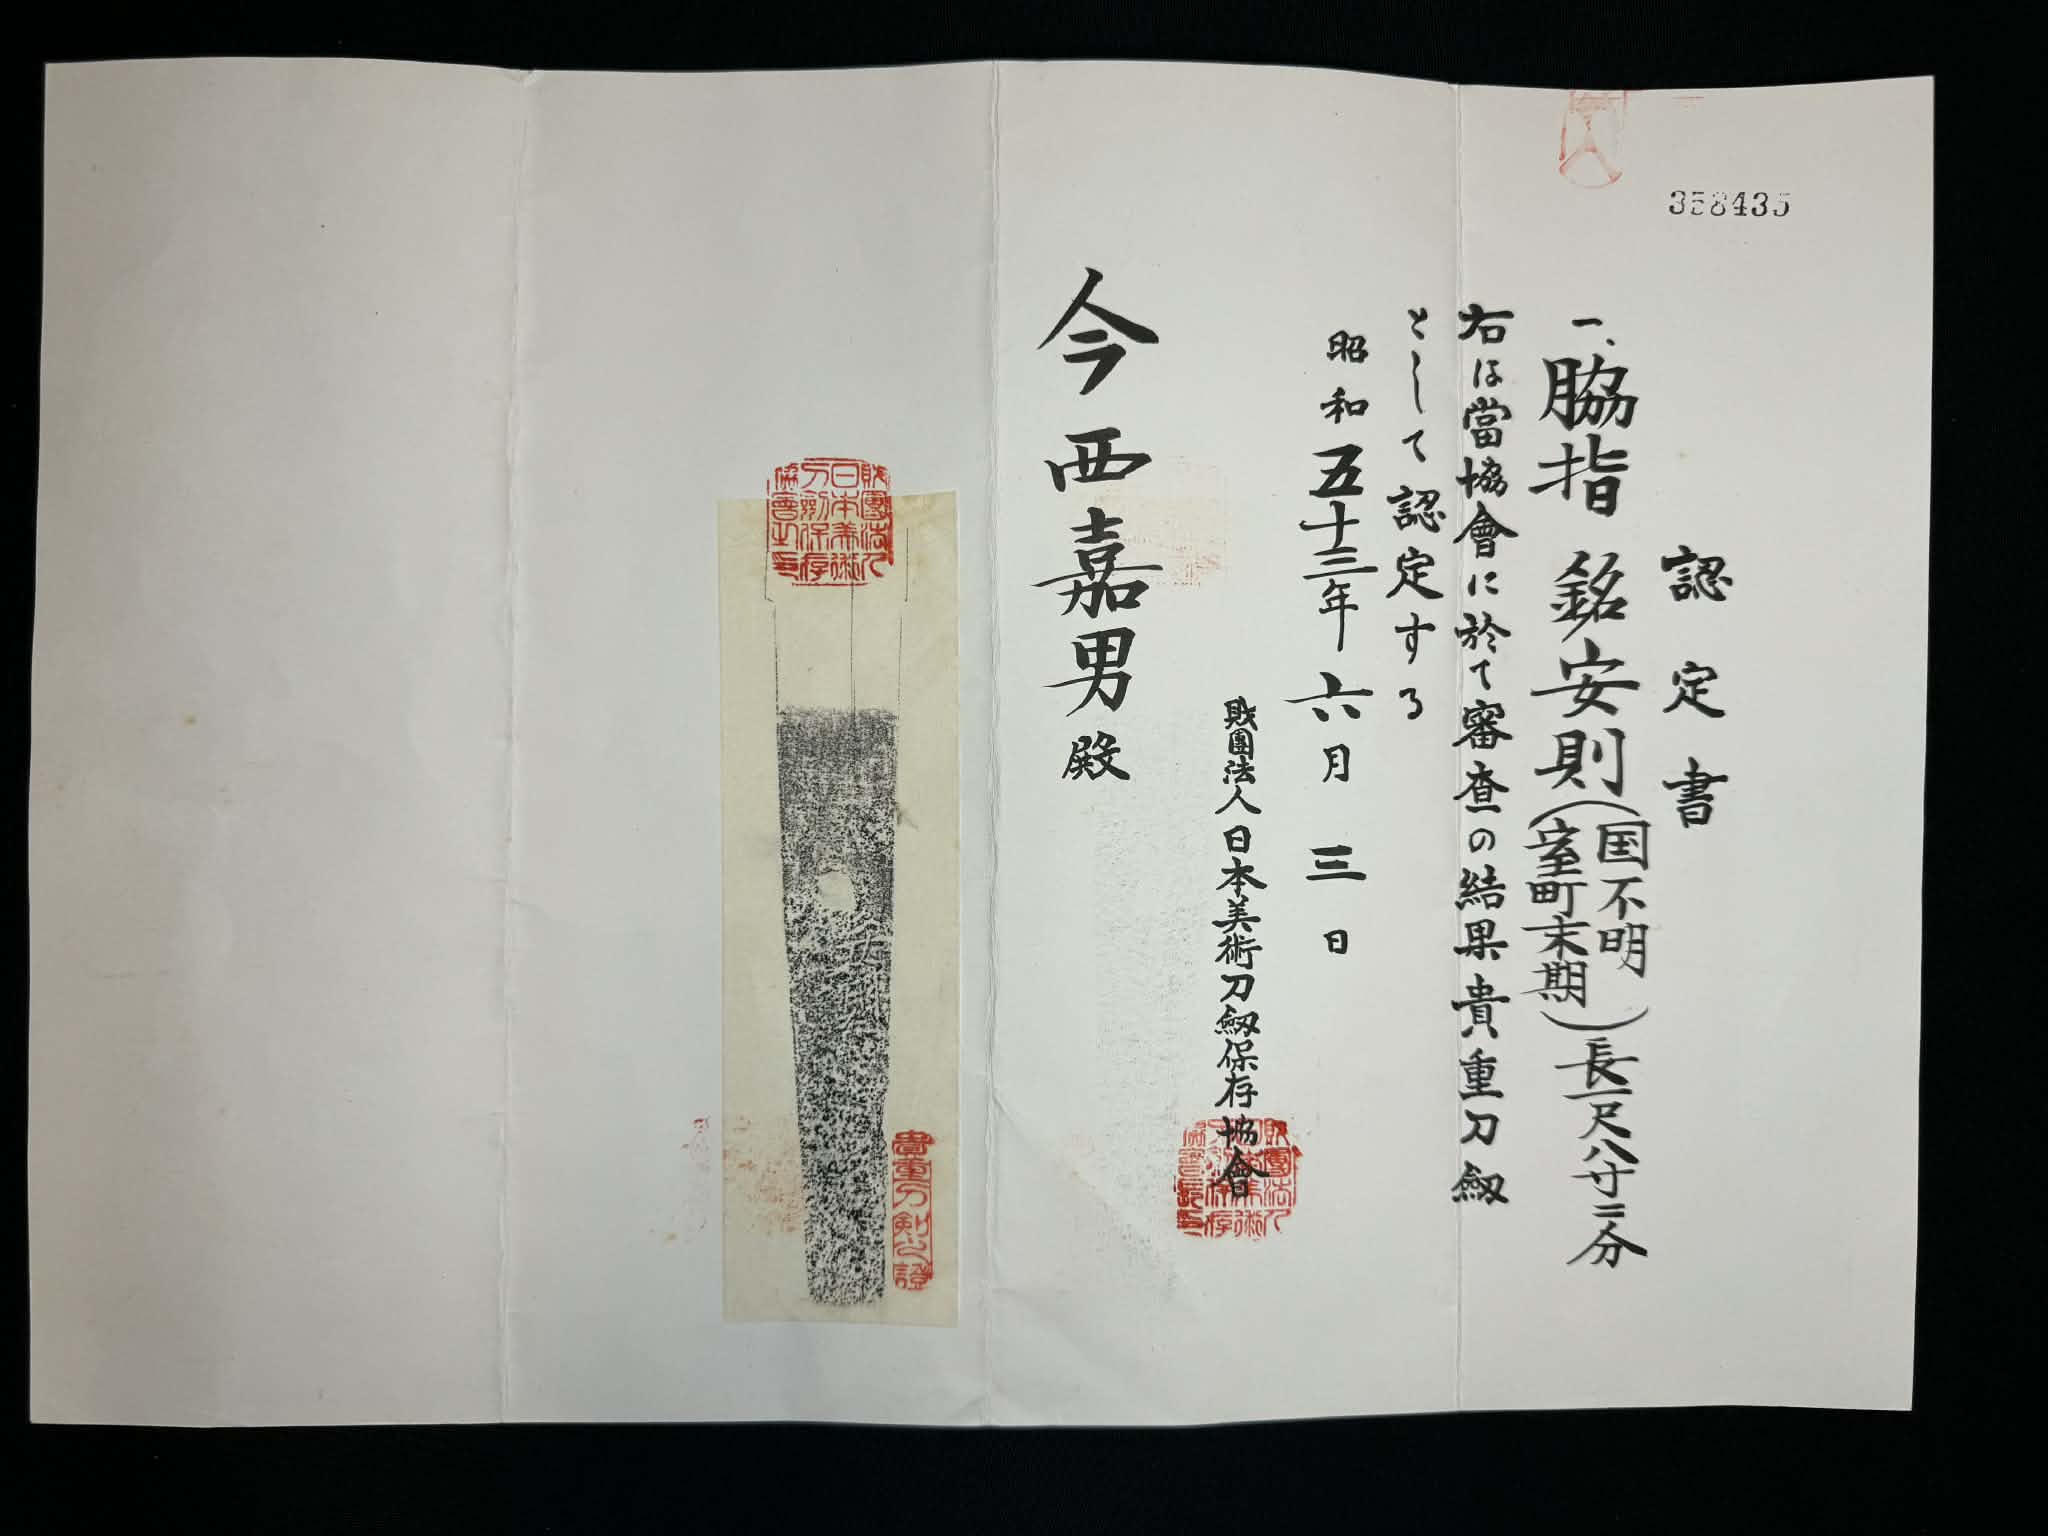 358435
認定書
一、脇指 銘 安則(国不明 室町末期)長一尺八寸二分
右は當協會に於て審査の結果貴重刀劔
として認定する
昭和五十三年六月三日
財團法人日本美術刀劔保存協會
財團法人日本美術刀劍保存協會長印
今西嘉男殿
財團法人日本美術刀劍保存協會之印
貴重刀剣之證